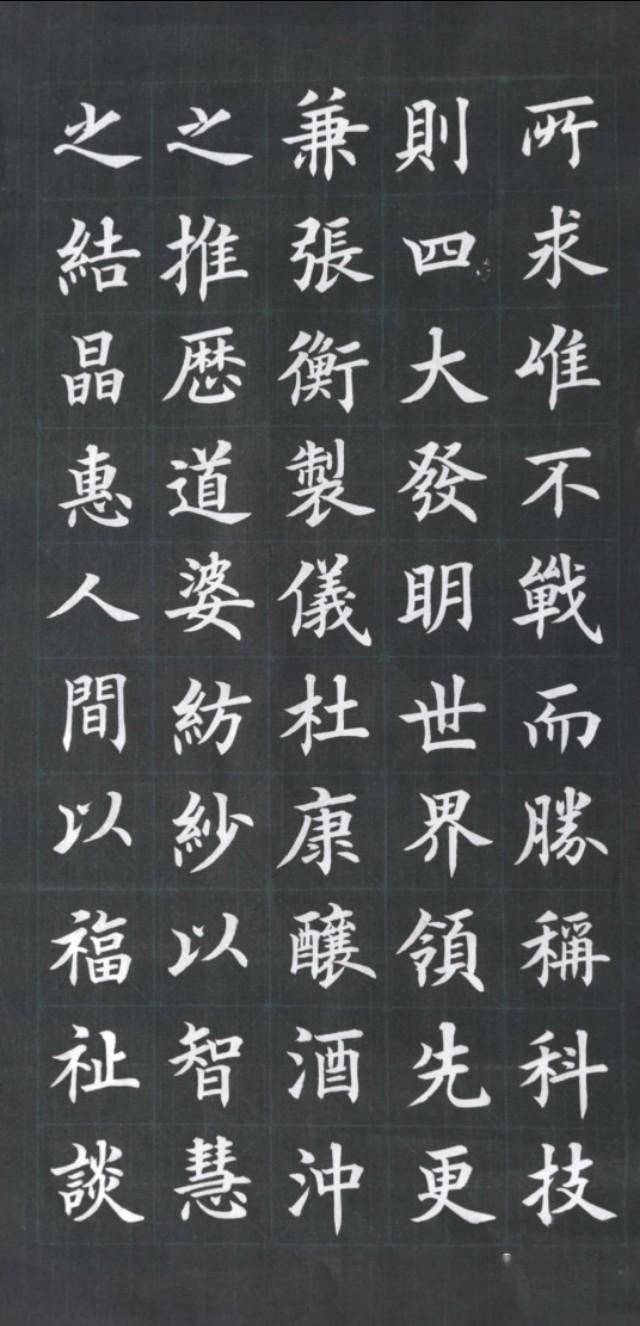 所求唯不戰而勝稱科技
則四大發明世界領先更
兼張衡製儀杜康釀酒沖
之推歷道婆紡紗以智慧
之結晶惠人間以福祉談